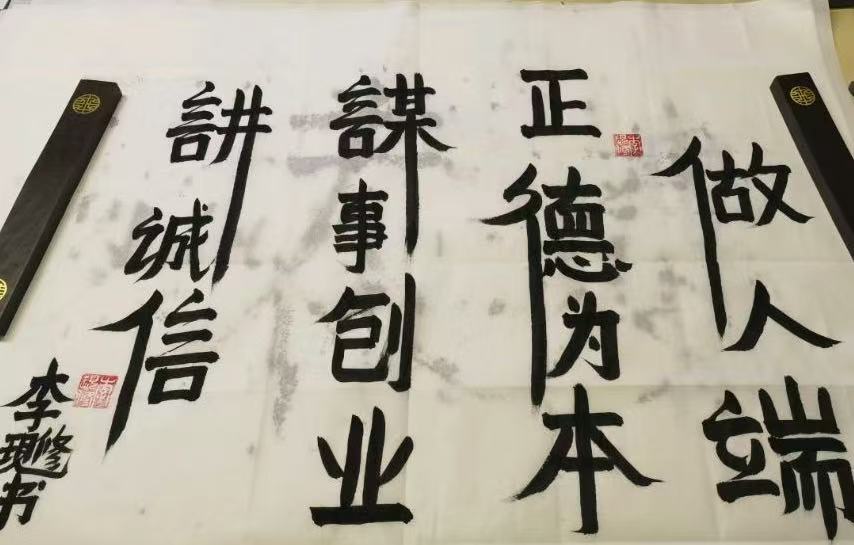 做人端
正德为本
謀事创业
讲诚信
李现修书